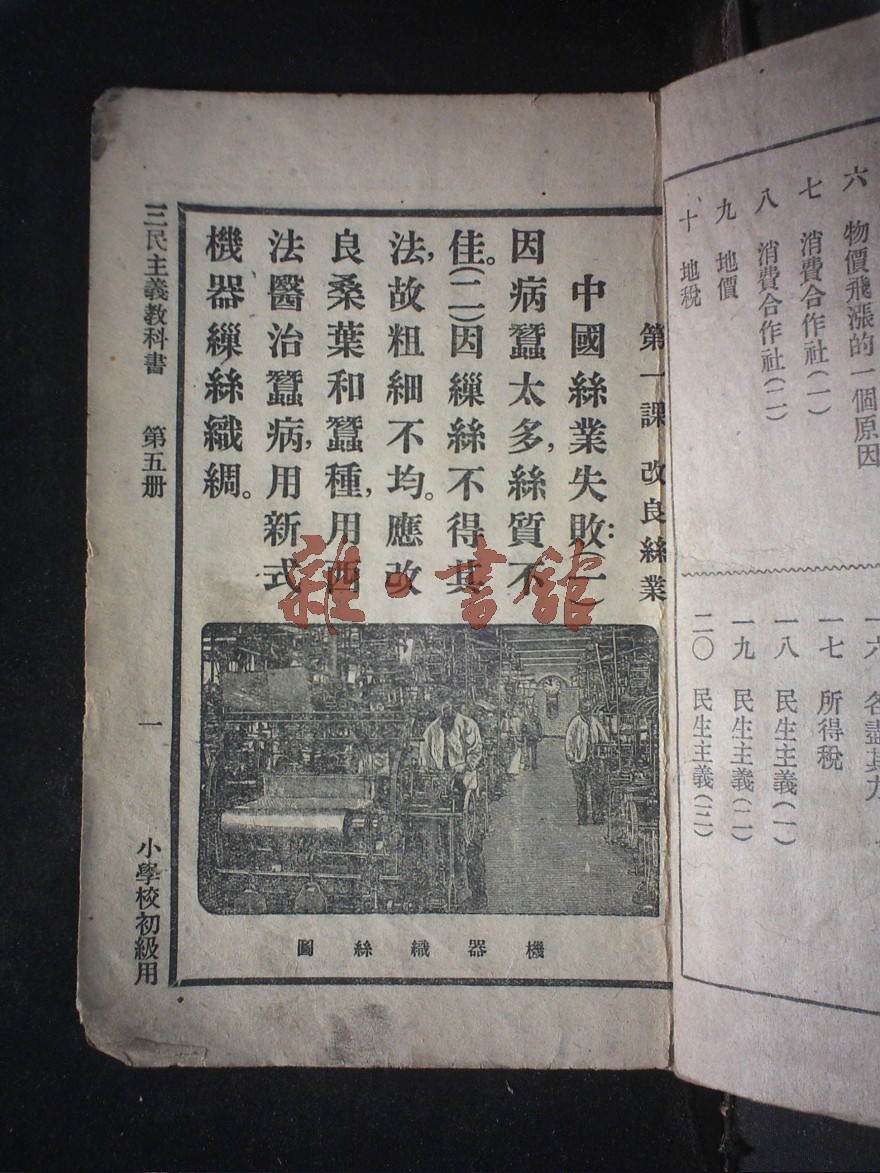 六 物價飛漲的一個原因
七 消費合作社(一)
八 消費合作社(二)
九 地價
十 地稅
一六 各盡其力
一七 所得稅
一八 民生主義(一)
一九 民生主義(二)
二〇 民生主義(三)
第一課 改良絲業
中國絲業失敗:(一)
因病蠶太多,絲質不
佳。(二)因繅絲不得其
法,故粗細不均。應改
良桑葉和蠶種,用西
法醫治蠶病,用新式
機器繅絲織綢。
機器織絲圖
三民主義教科書 第五册 一 小學校初級用
雜·書館